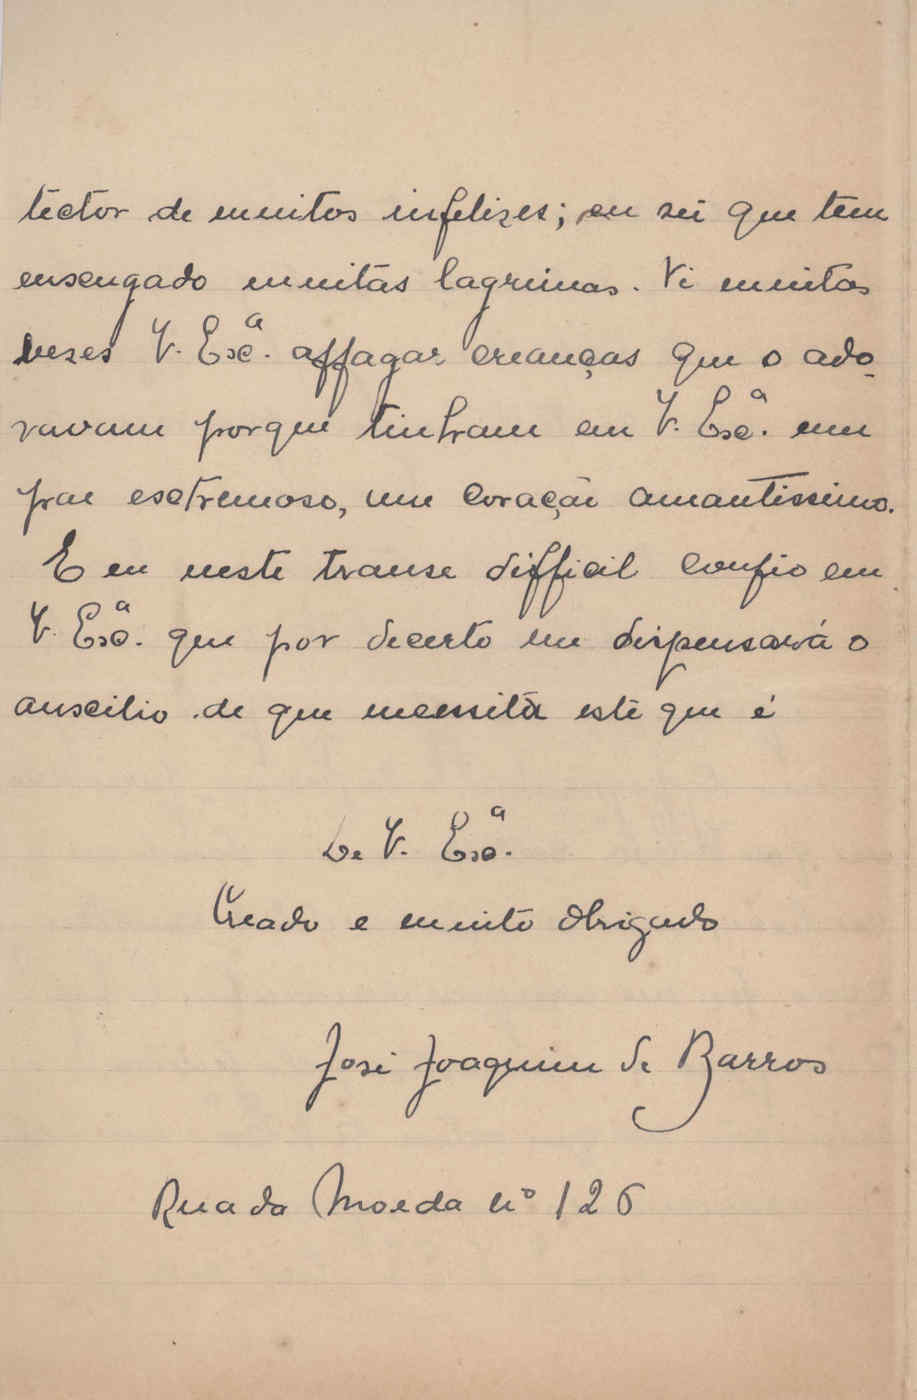 tector de muitos infelizes; eu sei que tem
enxugado muitas lagrimas. Vi muitas
vezes V. Exc.ª affagar creanças que o ado-
ravam porque tinham em V. Exc.ª um
pae extremoso, um coração amantissimo.
E eu neste transe difficil confio em
V. Exc.ª que por decerto me dispensará o
auxilio de que necessita este que é
De V. Exc.ª
Creado e muito obrigado
José Joaquim de Barros
Rua da Moeda nº 126